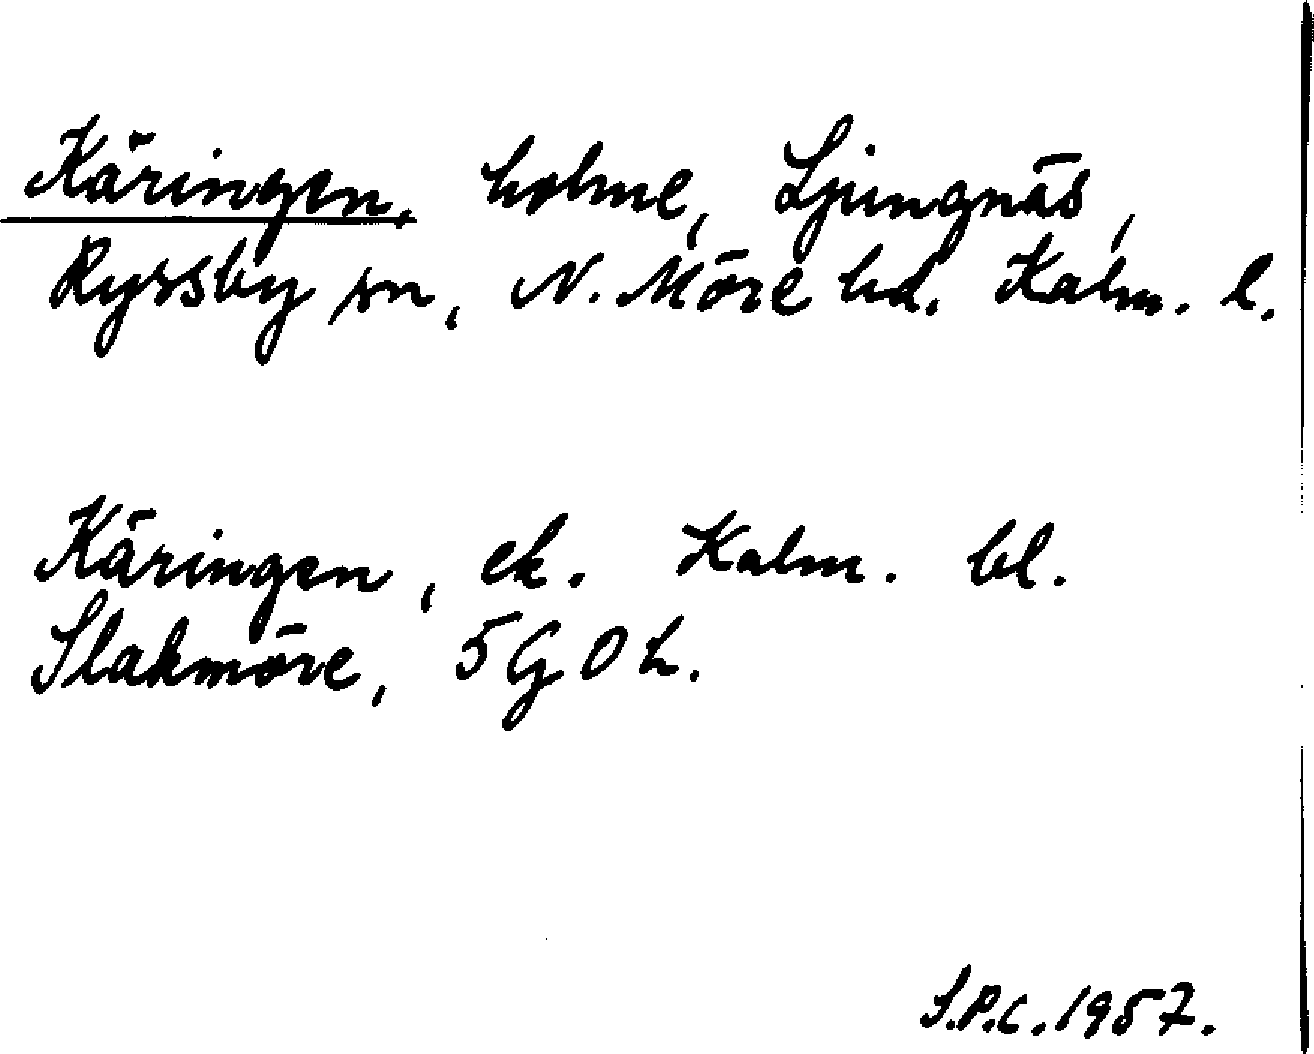 Käringen, holme, Ljungnäs,
Ryssby sn, N. Möre hd. Kalm. l.
Käringen, ek. Kalm. bl.
Slakmöre, 5 G 0 h.
S.P.C. 1957.